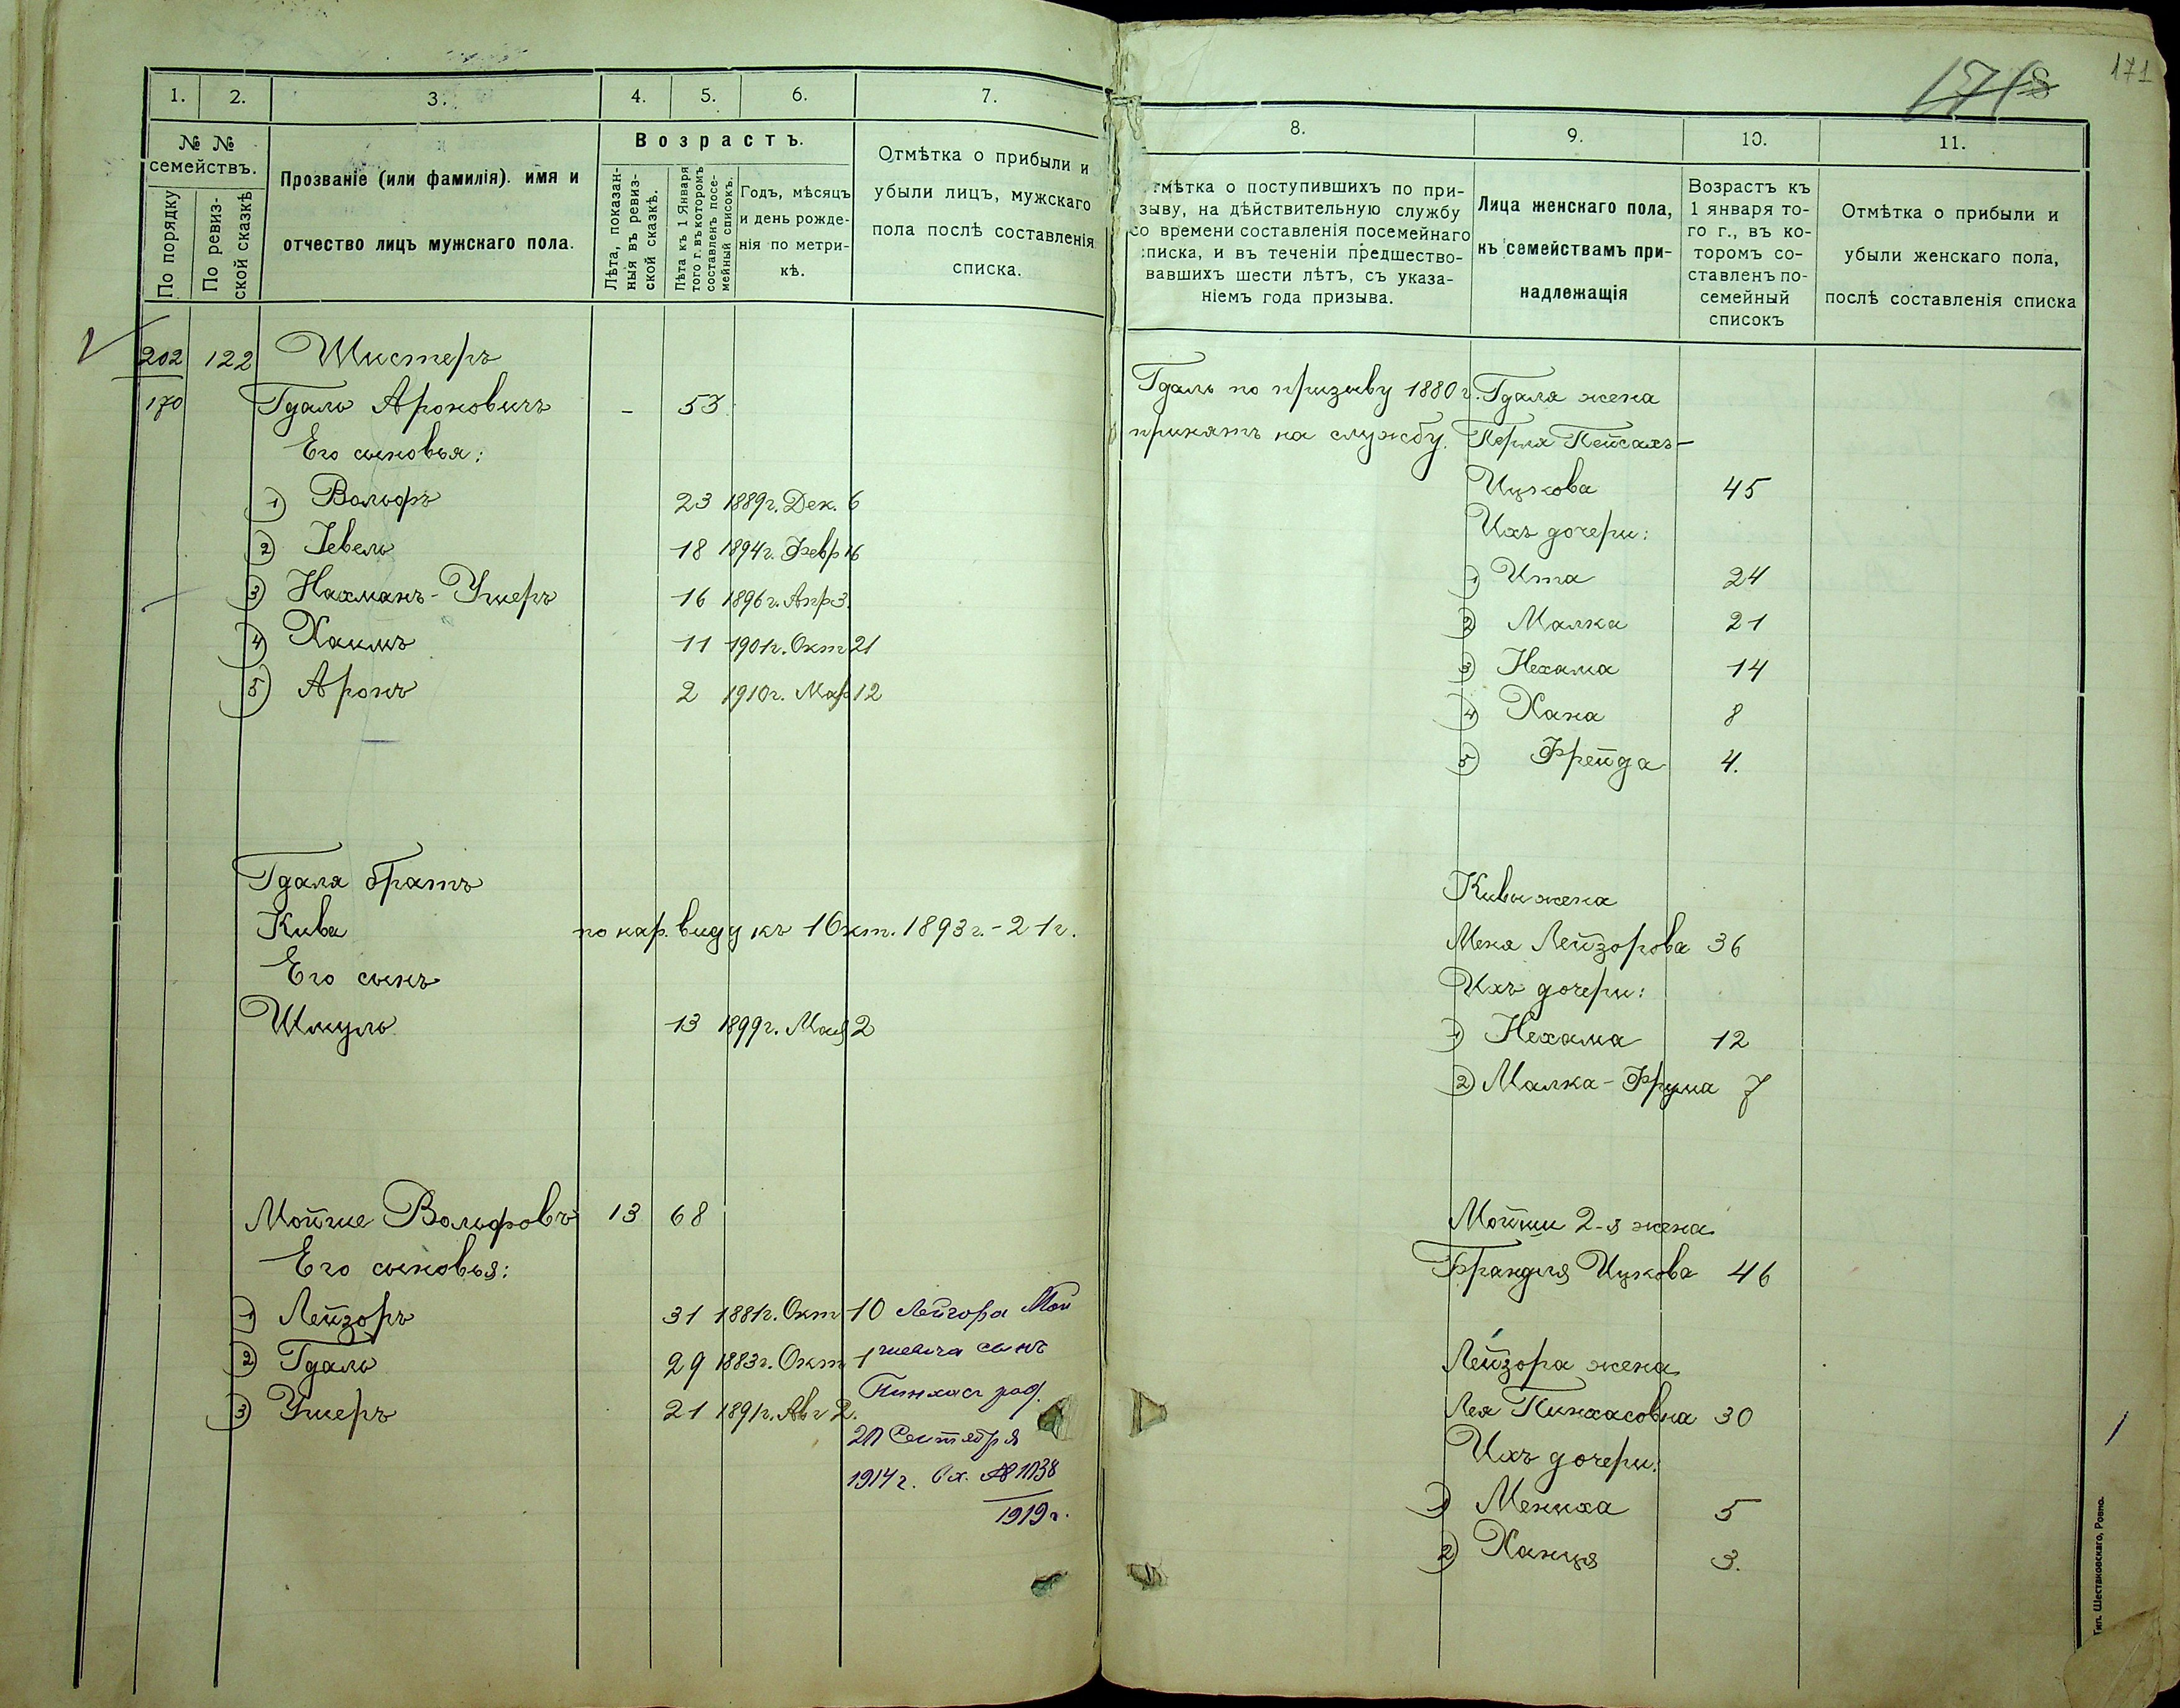 171
1.
2.
3.
4.
5.
6.
7.
№ №
семействъ.
По порядку
По ревиз-
ской сказкѣ
Прозваніе (или фамилія). имя и
отчество лицъ мужскаго пола.
Возрастъ.
Лѣта, показан-
ныя въ ревиз-
ской сказкѣ.
Лѣта къ 1 Января
того г. въ которомъ
составленъ посе-
мейный списокъ.
Годъ, мѣсяцъ
и день рожде-
нія по метри-
кѣ.
Отмѣтка о прибыли и
убыли лицъ, мужскаго
пола послѣ составленія
списка.
202 122 Шистеръ
170 Гдаль Ароновичъ - 53
Его сыновья:
1) Вольфъ 23 1889г. Дек. 6
2) Іевель 18 1894г. Февр 16
3) Нахманъ-Ушеръ 16 1896г. Апр 3.
4) Хаимъ 11 1901г. Окт 21
5) Аронъ 2 1910г. Мар 12
Гдаля братъ
Кива по нар. виду къ 1 Окт. 1893г.-21г.
Его сынъ
Шмуль 13 1899г. Мая 2
Мойше Вольфовъ 13 68
Его сыновья:
1) Лейзоръ 31 1881г. Окт 10
2) Гдаль 29 1883г. Окт 1
3) Ушеръ 21 1891г. Авг 2.
Лейзора Мой
шевича сынъ
Пинхас род.
20 Сентября
1914 г. Вх. № 1038
1919 г.
8.
9.
10.
11.
тмѣтка о поступившихъ по при-
зыву, на дѣйствительную службу
со времени составленія посемейнаго
списка, и въ теченіи предшество-
вавшихъ шести лѣтъ, съ указа-
ніемъ года призыва.
Лица женскаго пола,
къ семействамъ при-
надлежащія
Возрастъ къ
1 января то-
го г., въ ко-
торомъ со-
ставленъ по-
семейный
списокъ
Отмѣтка о прибыли и
убыли женскаго пола,
послѣ составленія списка
Гдаль по призыву 1880 г.
принятъ на службу.
Гдаля жена
Перля Пейсахъ-
Ицкова 45
Ихъ дочери:
1) Ита 24
2) Малка 21
3) Нехама 14
4) Хана 8
5) Фрейда 4.
Кивы жена
Меня Лейзорова 36
Ихъ дочери:
1) Нехама 12
2) Малка-Фрума 7
Мойши 2-я жена
Брандля Ицкова 46
Лейзора жена
Лея Пинхасовна 30
Ихъ дочери:
1) Мениха 5
2) Ханця 3.
Тип. Шестаковскаго, Ровно.